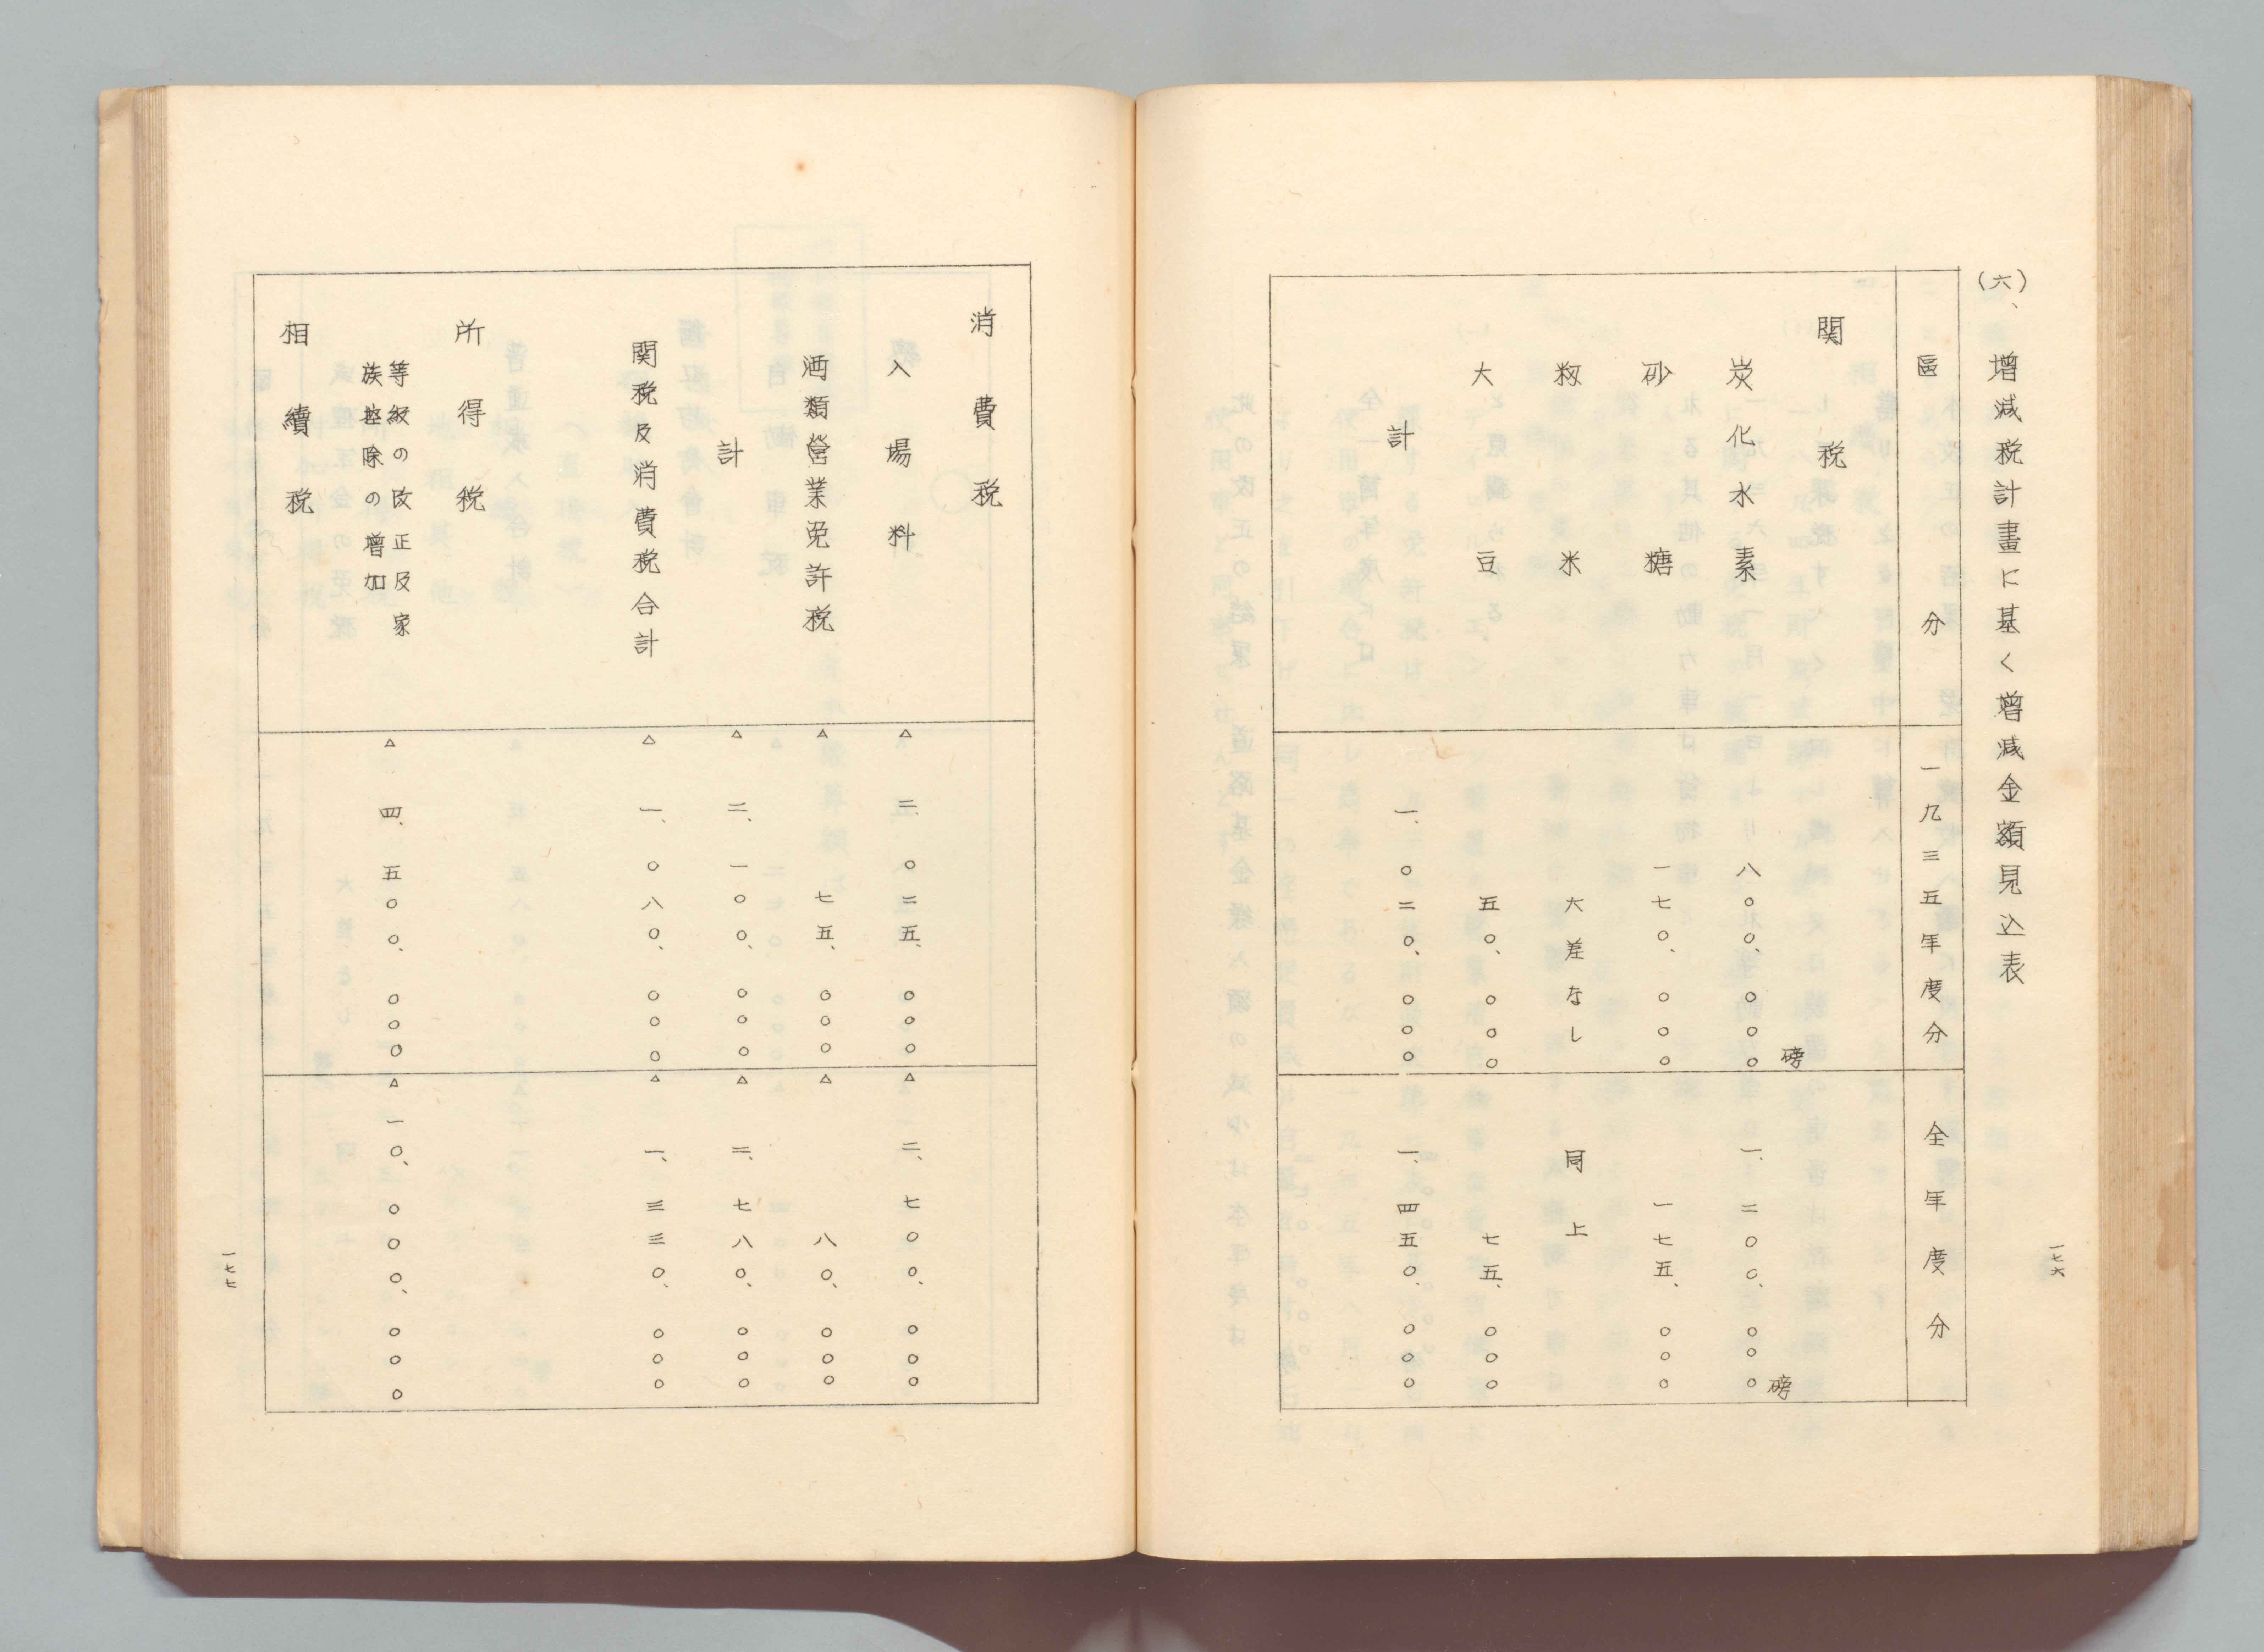 (六)、增減税計畫に基く增減金額見込表
區分 一九三五年度分 全年度分
関税
炭化水素 八〇〇、〇〇〇磅 一、二〇〇、〇〇〇磅
砂糖 一七〇、〇〇〇 一七五、〇〇〇
籾米 大差なし 同上
大豆 五〇、〇〇〇 七五、〇〇〇
計 一、〇二〇、〇〇〇 一、四五〇、〇〇〇
一七六
消費税
入場料 △ 二、〇二五、〇〇〇 △ 二、七〇〇、〇〇〇
酒類營業免許税 △ 七五、〇〇〇 △ 八〇、〇〇〇
計 △ 二、一〇〇、〇〇〇 △ 二、七八〇、〇〇〇
関税及消費税合計 △ 一、〇八〇、〇〇〇 △ 一、三三〇、〇〇〇
所得税
等級の改正及家
族控除の增加 △ 四、五〇〇、〇〇〇 △ 一〇、〇〇〇、〇〇〇
相續税
一七七